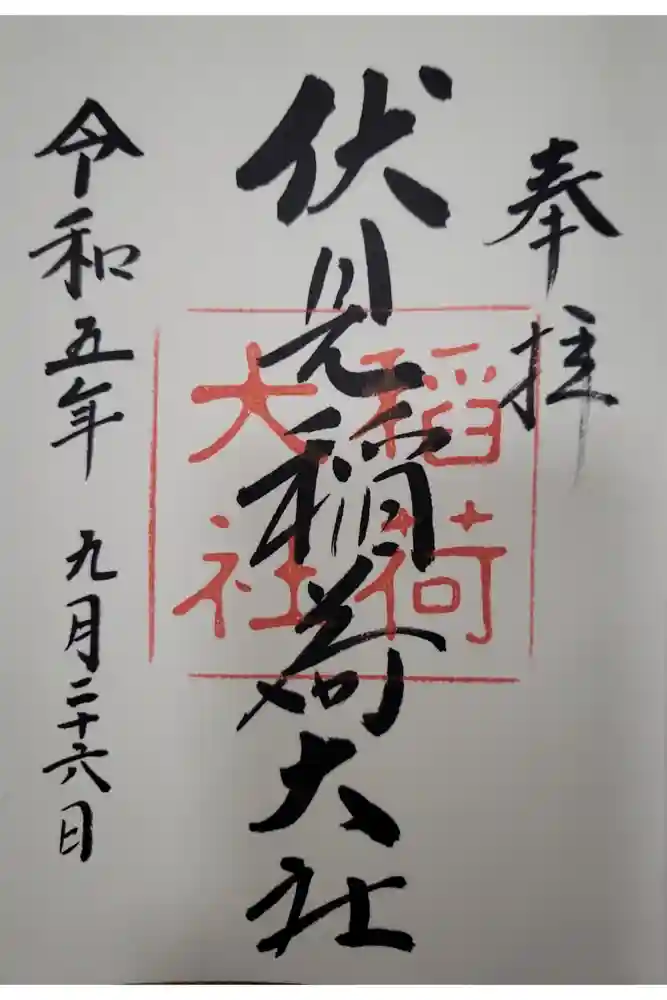 奉拝
伏見稲荷大社
稲荷
大社
令和五年 九月二十六日